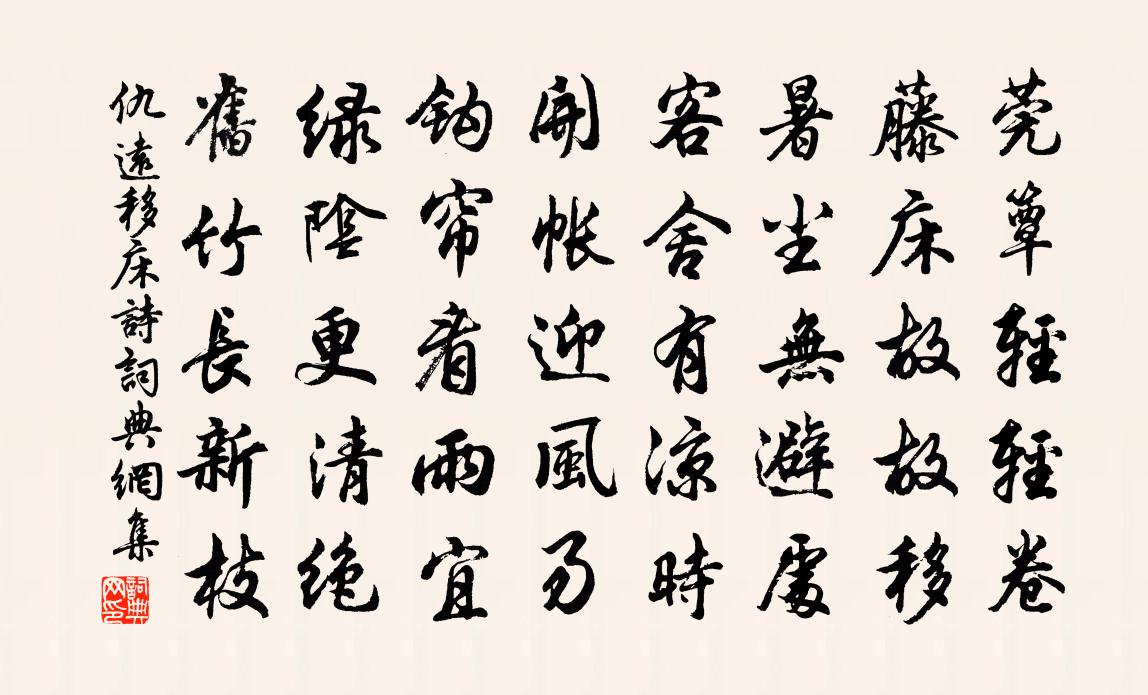 莞簟輕輕卷
藤床故故移
暑尘無避處
客舍有凉時
開帳迎風易
鈎帘看雨宜
緑陰更清绝
舊竹長新枝
仇遠移床詩詞典網集
詞典网印